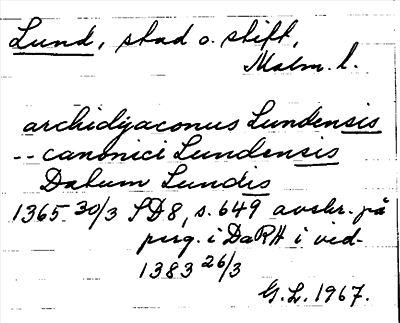 Lund, stad o. stift,
Malm. l.
archidyaconus Lundensis
-- canonici Lundensis
Datum Lundis
1365 30/3 SD8, s. 649 avskr. på
perg. i DaRA i vid-
1383 26/3
G.L. 1967.